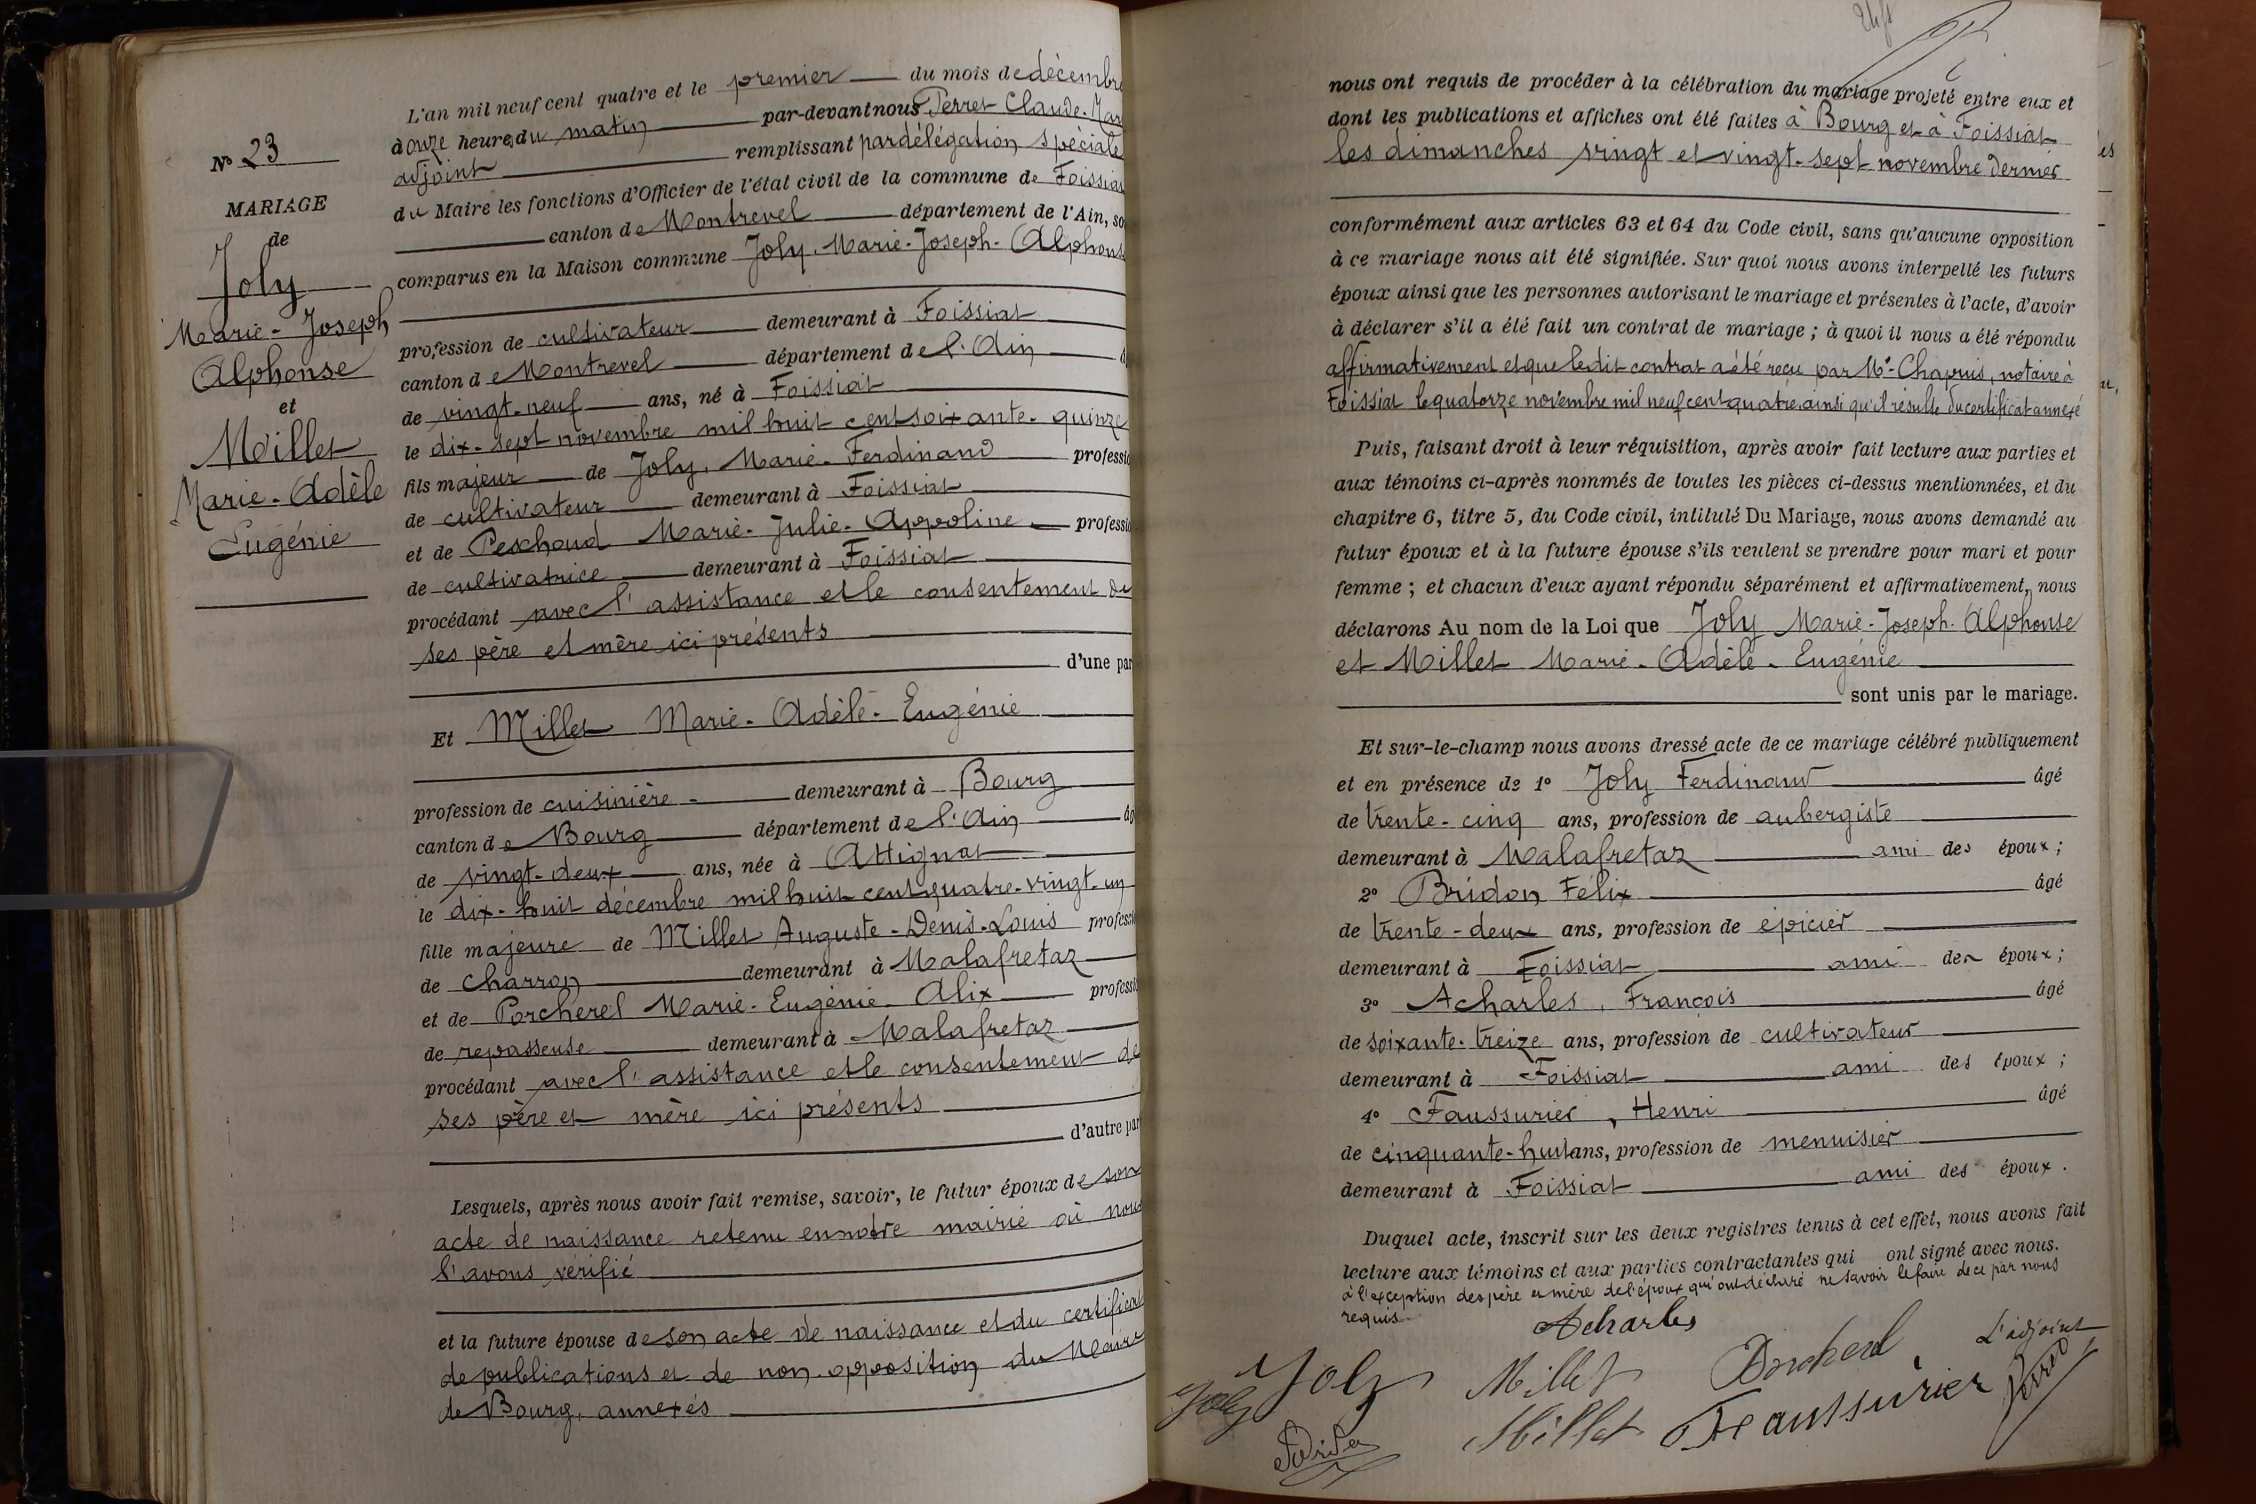 N° 23
MARIAGE
de
Joly
Marie-Joseph
Alphonse
et
Millet
Marie-Adèle
Eugénie
L'an mil neuf cent quatre et le premier du mois de décembre
à onze heures du matin par-devant nous Perret Claude-Mar
adjoint remplissant par délégation spéciale
du Maire les fonctions d'Officier de l'état civil de la commune de Foissiat
canton de Montrevel département de l'Ain, so
comparus en la Maison commune Joly, Marie-Joseph-Alphonse
profession de cultivateur demeurant à Foissiat
canton de Montrevel département de l'Ain
de vingt-neuf ans, né à Foissiat
le dix-sept novembre mil huit cent soixante-quinze
fils majeur de Joly, Marie-Ferdinand professio
de cultivateur demeurant à Foissiat
et de Peschoud Marie-Julie-Appoline professio
de cultivatrice demeurant à Foissiat
procédant avec l'assistance et le consentement de
ses père et mère ici présents
d'une par
Et Millet Marie-Adèle-Eugénie
profession de cuisinière demeurant à Bourg
canton de Bourg département de l'Ain âg
de vingt-deux ans, née à Attignat
le dix-huit décembre mil huit cent quatre-vingt-un
fille majeure de Millet Auguste-Denis-Louis professi
de charron demeurant à Malafretaz
et de Porcherel Marie-Eugénie-Alix professi
de repasseuse demeurant à Malafretaz
procédant avec l'assistance et le consentement de
ses père et mère ici présents
d'autre par
Lesquels, après nous avoir fait remise, savoir, le futur époux de son
acte de naissance retenu en notre mairie où nous
l'avons vérifié
et la future épouse de son acte de naissance et du certificat
de publications et de non-opposition du Maire
de Bourg, annexés
nous ont requis de procéder à la célébration du mariage projeté entre eux et
dont les publications et affiches ont été faites à Bourg et à Foissiat
les dimanches vingt et vingt-sept novembre dernier
conformément aux articles 63 et 64 du Code civil, sans qu'aucune opposition
à ce mariage nous ait été signifiée. Sur quoi nous avons interpellé les futurs
époux ainsi que les personnes autorisant le mariage et présentes à l'acte, d'avoir
à déclarer s'il a été fait un contrat de mariage ; à quoi il nous a été répondu
affirmativement et que ledit contrat a été reçu par Me Chapuis, notaire à
Foissiat le quatorze novembre mil neuf cent quatre ainsi qu'il résulte du certificat annexé
Puis, faisant droit à leur réquisition, après avoir fait lecture aux parties et
aux témoins ci-après nommés de toutes les pièces ci-dessus mentionnées, et du
chapitre 6, titre 5, du Code civil, intitulé Du Mariage, nous avons demandé au
futur époux et à la future épouse s'ils veulent se prendre pour mari et pour
femme ; et chacun d'eux ayant répondu séparément et affirmativement, nous
déclarons Au nom de la Loi que Joly Marie-Joseph-Alphonse
et Millet Marie-Adèle-Eugénie
sont unis par le mariage.
Et sur-le-champ nous avons dressé acte de ce mariage célébré publiquement
et en présence de 1° Joly Ferdinand âgé
de trente-cinq ans, profession de aubergiste
demeurant à Malafretaz ami des époux ;
2° Bridon Félix âgé
de trente-deux ans, profession de épicier
demeurant à Foissiat ami des époux ;
3° Acharles, François âgé
de soixante-treize ans, profession de cultivateur
demeurant à Foissiat ami des époux ;
4° Faussurier, Henri âgé
de cinquante-huit ans, profession de menuisier
demeurant à Foissiat ami des époux.
Duquel acte, inscrit sur les deux registres tenus à cet effet, nous avons fait
lecture aux témoins et aux parties contractantes qui ont signé avec nous.
à l'exception des père et mère de l'époux qui ont déclaré ne savoir le faire de ce par nous
requis.
Acharles
Joly Millet Porcherel L'adjoint
Joly Millet Faussurier Perret